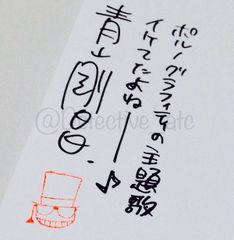 ポルノグラフィティの主題歌
イケてたよねー♪
青山剛昌.
@Detective_atc